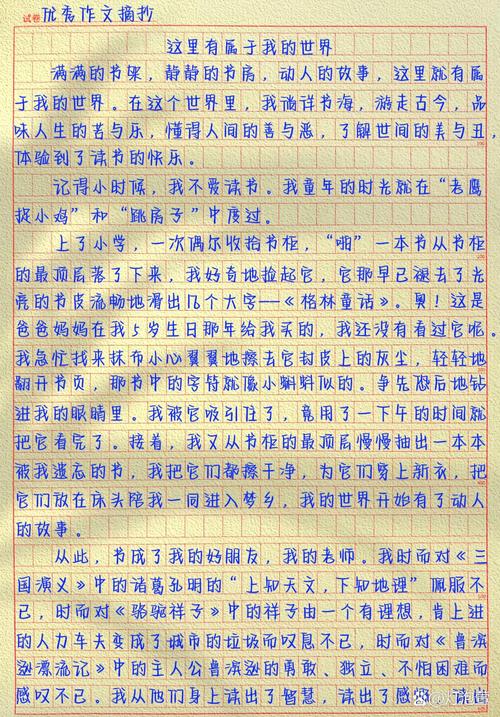 试卷 优秀作文摘抄
这里有属于我的世界
满满的书架，静静的书房，动人的故事，这里就有属
于我的世界。在这个世界里，我徜徉书海，游走古今，品
味人生的苦与乐，懂得人间的善与恶，了解世间的美与丑，
体验到了读书的快乐。
记得小时候，我不爱读书。我童年的时光就在“老鹰
捉小鸡”和“跳房子”中度过。
上了小学，一次偶尔收拾书柜，“啪”一本书从书柜
的最顶层落了下来，我好奇地捡起它，它那早已褪去了光
亮的书皮流畅地滑出几个大字——《格林童话》。奥！这是
爸爸妈妈在我5岁生日那年给我买的，我还没有看过它呢。
我急忙找来抹布小心翼翼地擦去它封皮上的灰尘，轻轻地
翻开书页，那书中的字符就像小蝌蚪似的。争先恐后地钻
进我的眼睛里。我被它吸引住了，竟用了一下午的时间就
把它看完了。接着，我又从书柜的最顶层慢慢抽出一本本
被我遗忘的书，我把它们都擦干净，为它们穿上新衣，把
它们放在床头陪我一同进入梦乡，我的世界开始有了动人
的故事。
从此，书成了我的好朋友，我的老师。我时而对《三
国演义》中的诸葛孔明的“上知天文，下知地理”佩服不
已，时而对《骆驼祥子》中的祥子由一个有理想，肯上进
的人力车夫变成了城市的垃圾而叹息不已，时而对《鲁滨
逊漂流记》中的主人公鲁滨逊的勇敢、独立、不怕困难而
感叹不已。我从他们身上读出了智慧，读出了感